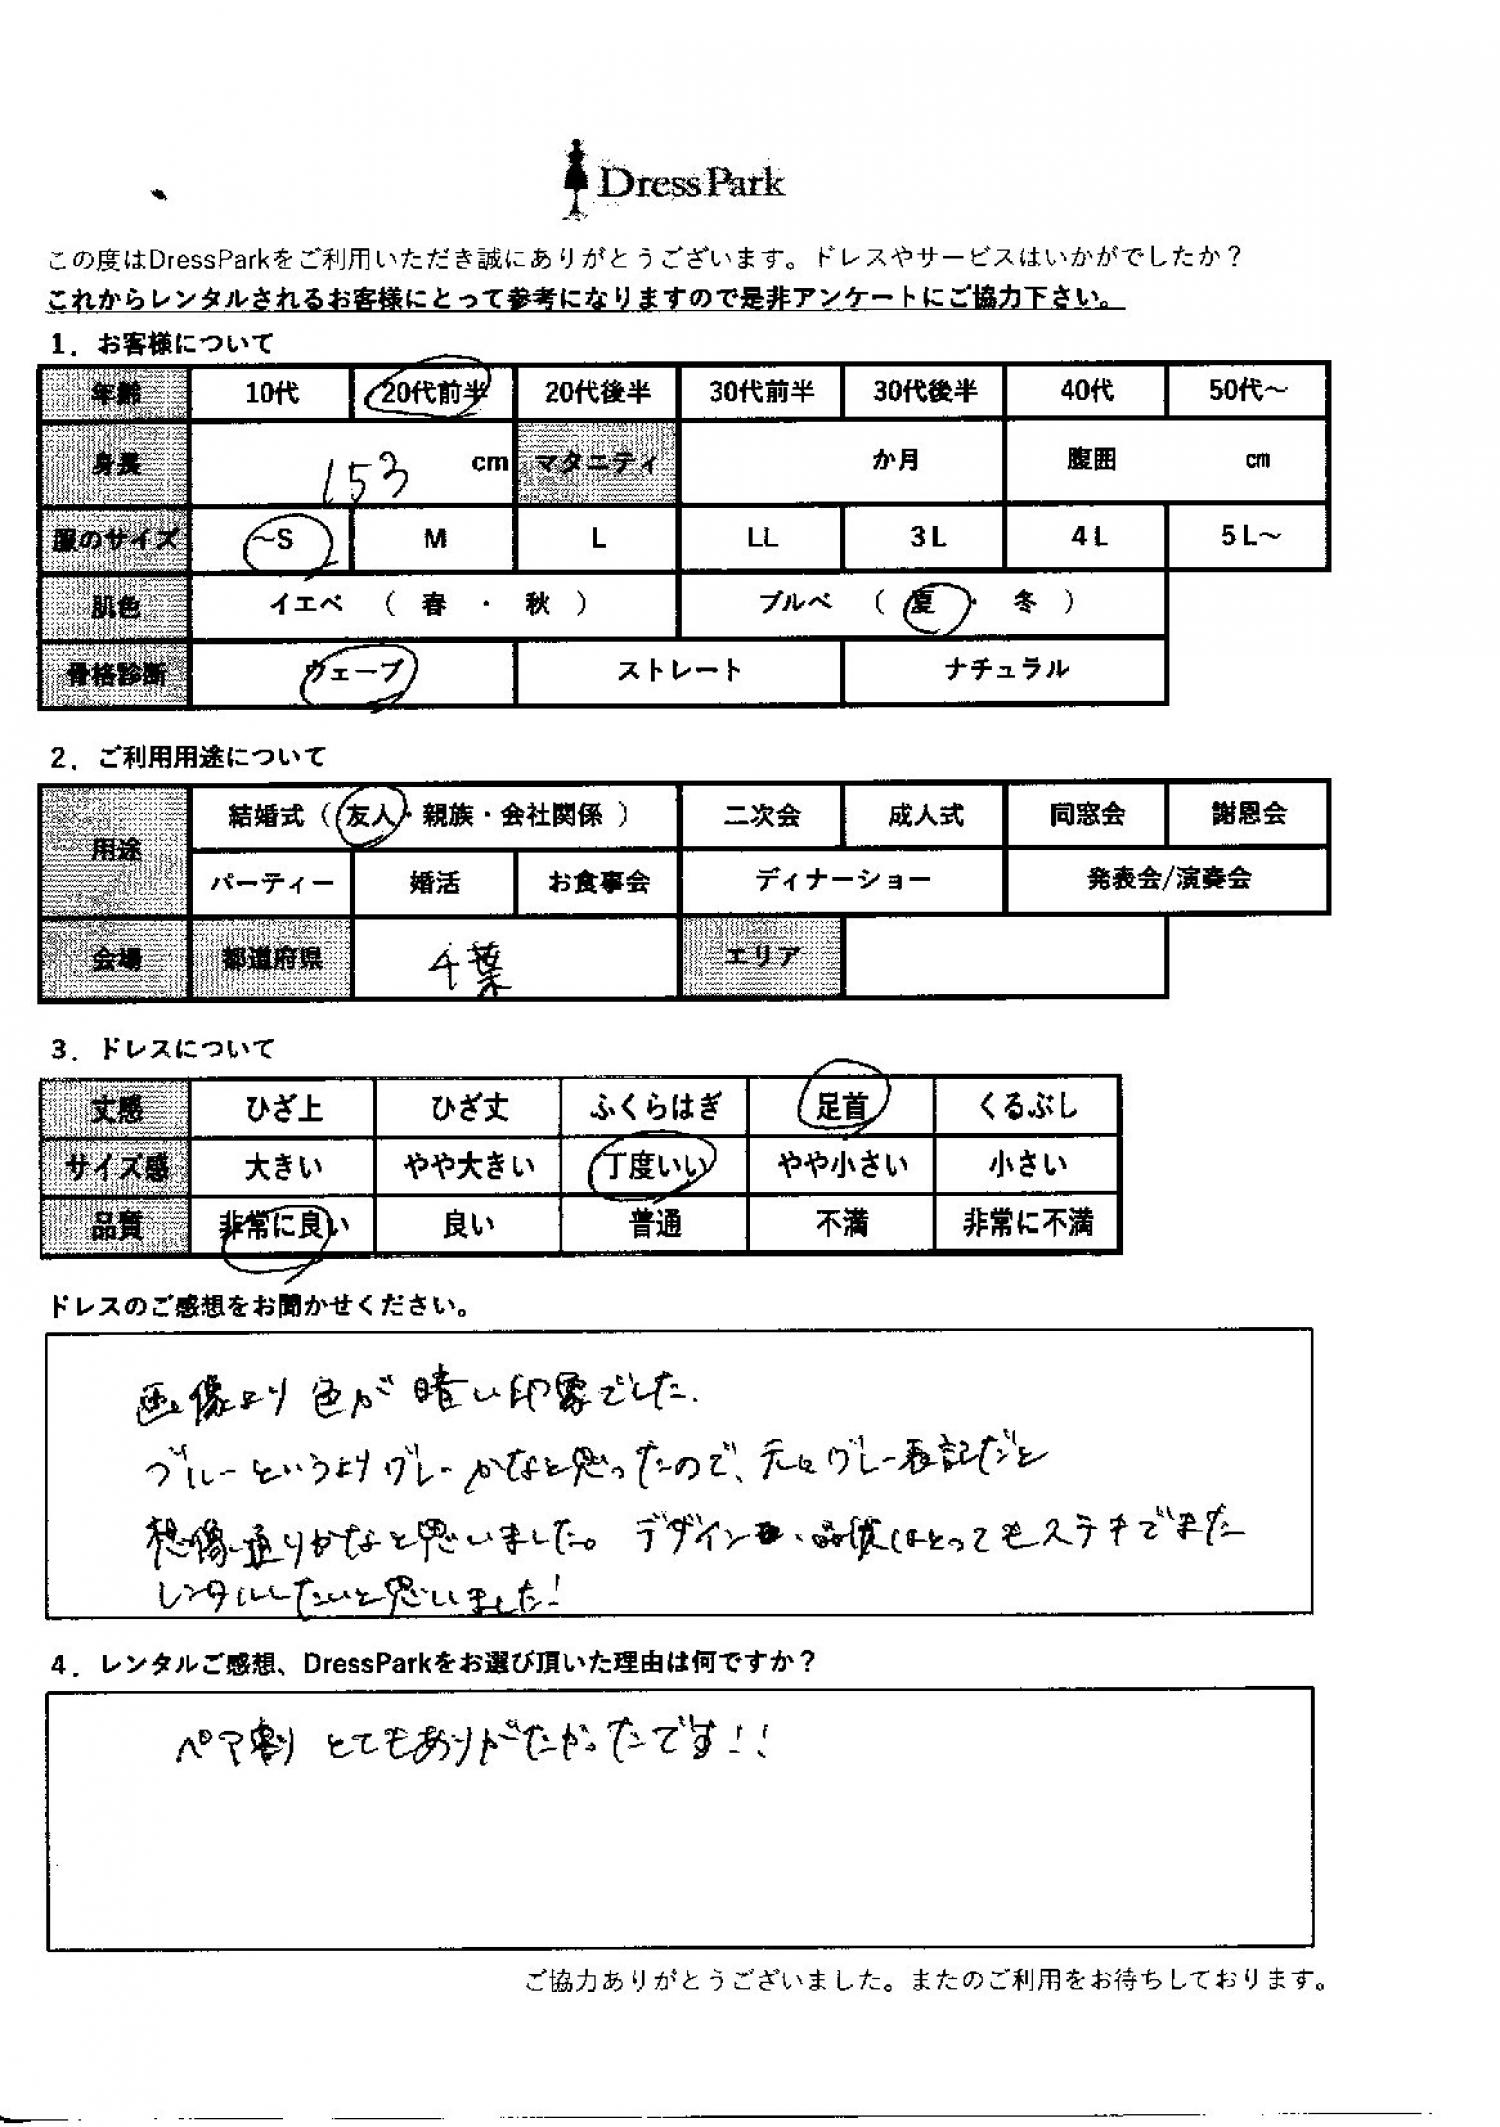 DressPark
この度はDressParkをご利用いただき誠にありがとうございます。ドレスやサービスはいかがでしたか？
これからレンタルされるお客様にとって参考になりますので是非アンケートにご協力下さい。
1．お客様について
年齢 10代 20代前半 20代後半 30代前半 30代後半 40代 50代～
身長 153 cm マタニティ か月 腹囲 cm
服のサイズ ～S M L LL 3L 4L 5L～
肌色 イエベ （ 春 ・ 秋 ） ブルベ （ 夏 ・ 冬 ）
骨格診断 ウェーブ ストレート ナチュラル
2．ご利用用途について
用途 結婚式（ 友人・親族・会社関係 ） 二次会 成人式 同窓会 謝恩会
パーティー 婚活 お食事会 ディナーショー 発表会/演奏会
会場 都道府県 千葉 エリア
3．ドレスについて
丈感 ひざ上 ひざ丈 ふくらはぎ 足首 くるぶし
サイズ感 大きい やや大きい 丁度いい やや小さい 小さい
品質 非常に良い 良い 普通 不満 非常に不満
ドレスのご感想をお聞かせください。
画像より色が暗い印象でした.
ブルーというよりグレーかなと思ったので、元々グレー表記だと
想像通りかなと思いました。デザイン、品質はとってもステキでまた
レンタルしたいと思いました!
4．レンタルご感想、DressParkをお選び頂いた理由は何ですか？
ペア割 とてもありがたかったです!!
ご協力ありがとうございました。またのご利用をお待ちしております。